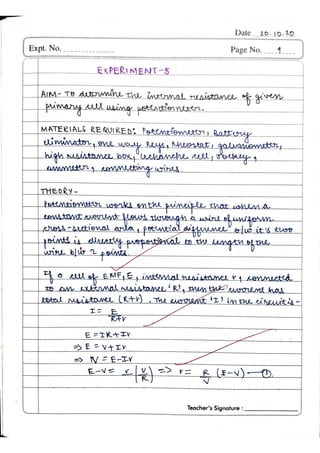 Date 20.10.20
Expt. No.
Page No. 1
EXPERIMENT-5
AIM- To determine the internal resistance of given
primary cell using potentiometer.
MATERIALS REQUIRED: Potentiometer, Battery
eliminator, one way keys, Rheostat, galvanometer,
high resistance box, Leclanche cell, Jockey,
ammeter, connecting wires.
THEORY-
Potentiometer works on the principle that when a
constant current flows through a wire of uniform
cross-sectional area, potential difference b/w it's two
points is directly proportional to the length of the
wire b/w 2 points.
If a cell of EMF, E, internal resistance r, connected
to an external resistance 'R', then the current has
total resistance (R+r). The current 'I' in the circuit is-
I = E
R+r
E = IR + Ir
=> E = V + Ir
=> V = E - Ir
E-V = r (V/R) => r = R/V (E-V) —①.
Teacher's Signature :